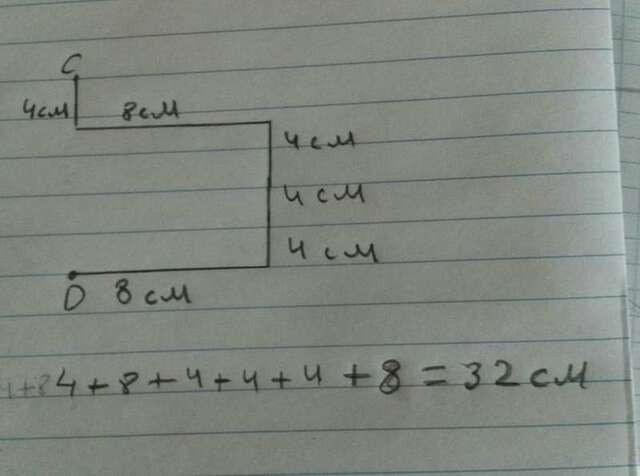 С
4см 8см
4см
4см
4см
D 8см
4+8+4+4+4+8=32см